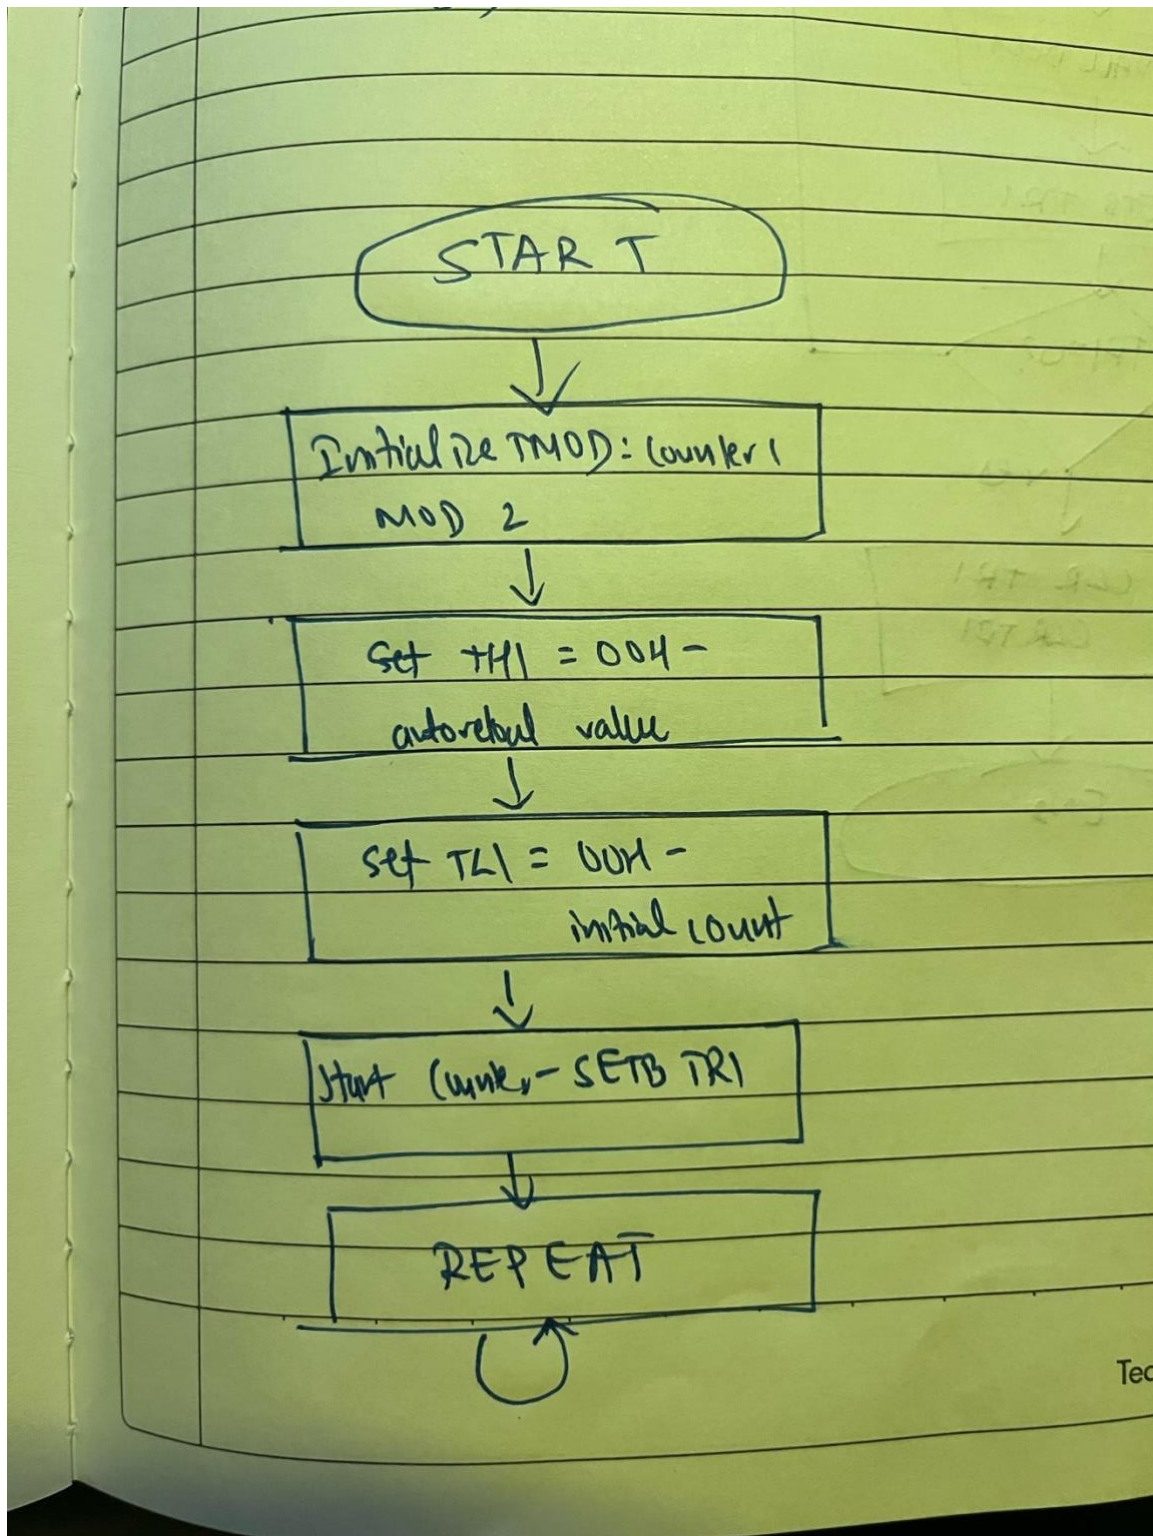 START
Initialize TMOD: Counter 1
MOD 2
Set TH1 = 00H -
autoreload value
set TL1 = 00H -
initial count
Start Counter - SETB TR1
REPEAT
Tec